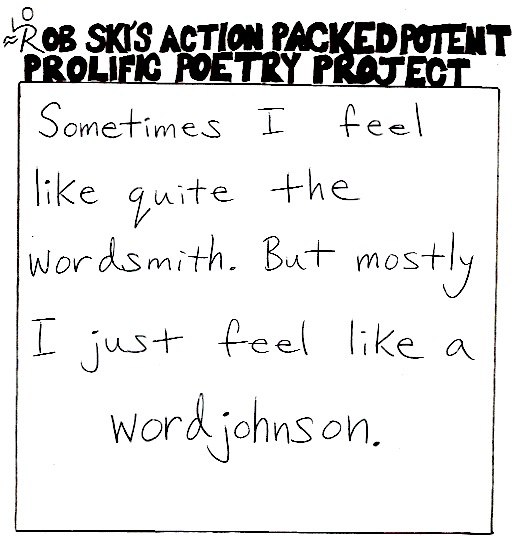 ROB SKI'S ACTION PACKED POTENT
PROLIFIC POETRY PROJECT
Sometimes I feel
like quite the
wordsmith. But mostly
I just feel like a
wordjohnson.